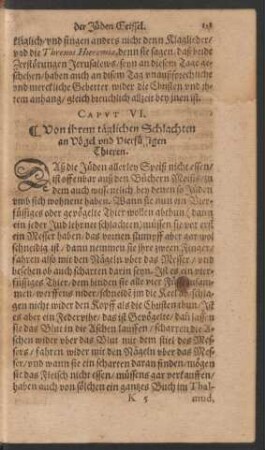 der Jüden Geissel. 
kläglich/vnd singen anders nicht denn Klaglieder/
vnd die Threnos Hieremiæ, denn sie sagen/ daß beide
Zerstörungen Jerusalems/ seyn an diesem Tage ge-
schehen/ haben auch an disem Tag vnaußsprechliche
vnd merckliche Gebetter wider die Christen vnd jh-
rem anhang/ gleich breuchlich allzeit bey jnen ist.
CAPVT VI.
¶ Von ihrem täglichen Schlachten
an Vögel vnd Vierfüssigen
Thieren.
DAß die Jüden allerley Speiß nicht essen/
ist offenbar auß den Büchern Mosis/ zu
dem auch wissentlich bey denen so Jüden
vmb sich wohnent haben. Wann sie nun ein Vier-
füssiges oder gevögelte Thier wollen abthun/ dann
ein jeder Jud lehrnet schlachten/ müssen sie vor erst
ein Messer haben/ das vornen stumpff aber gar wol
schneidig ist/ dann nemmen sie jhre zween Finger/
fahren also mit den Nägeln vber das Messer/ vnd
besehen ob auch scharten darin seyn. Ist es ein vier-
füssiges Thier/ dem binden sie alle vier Füß zusam-
men/ werffens nider/ schneidē jm die Kell ab/ schla-
gen nicht wider den Kopff als die Christen thun/ Ist
es aber ein Federvihe/ das ist Gevögelte/ da lassen
sie das Blut in die Aschen lauffen/ scharren die A-
schen wider vber das Blut mit dem stiel des Mes-
sers/ fahren wider mit den Nägeln vber das Mes-
ser/ vnd wann sie ein scharten daran finden/ mögen
sie das Fleisch nicht essen/ müssens gar verkauffen/
haben auch von sölchen ein gantzes Buch im Thal-
K 5 mud,